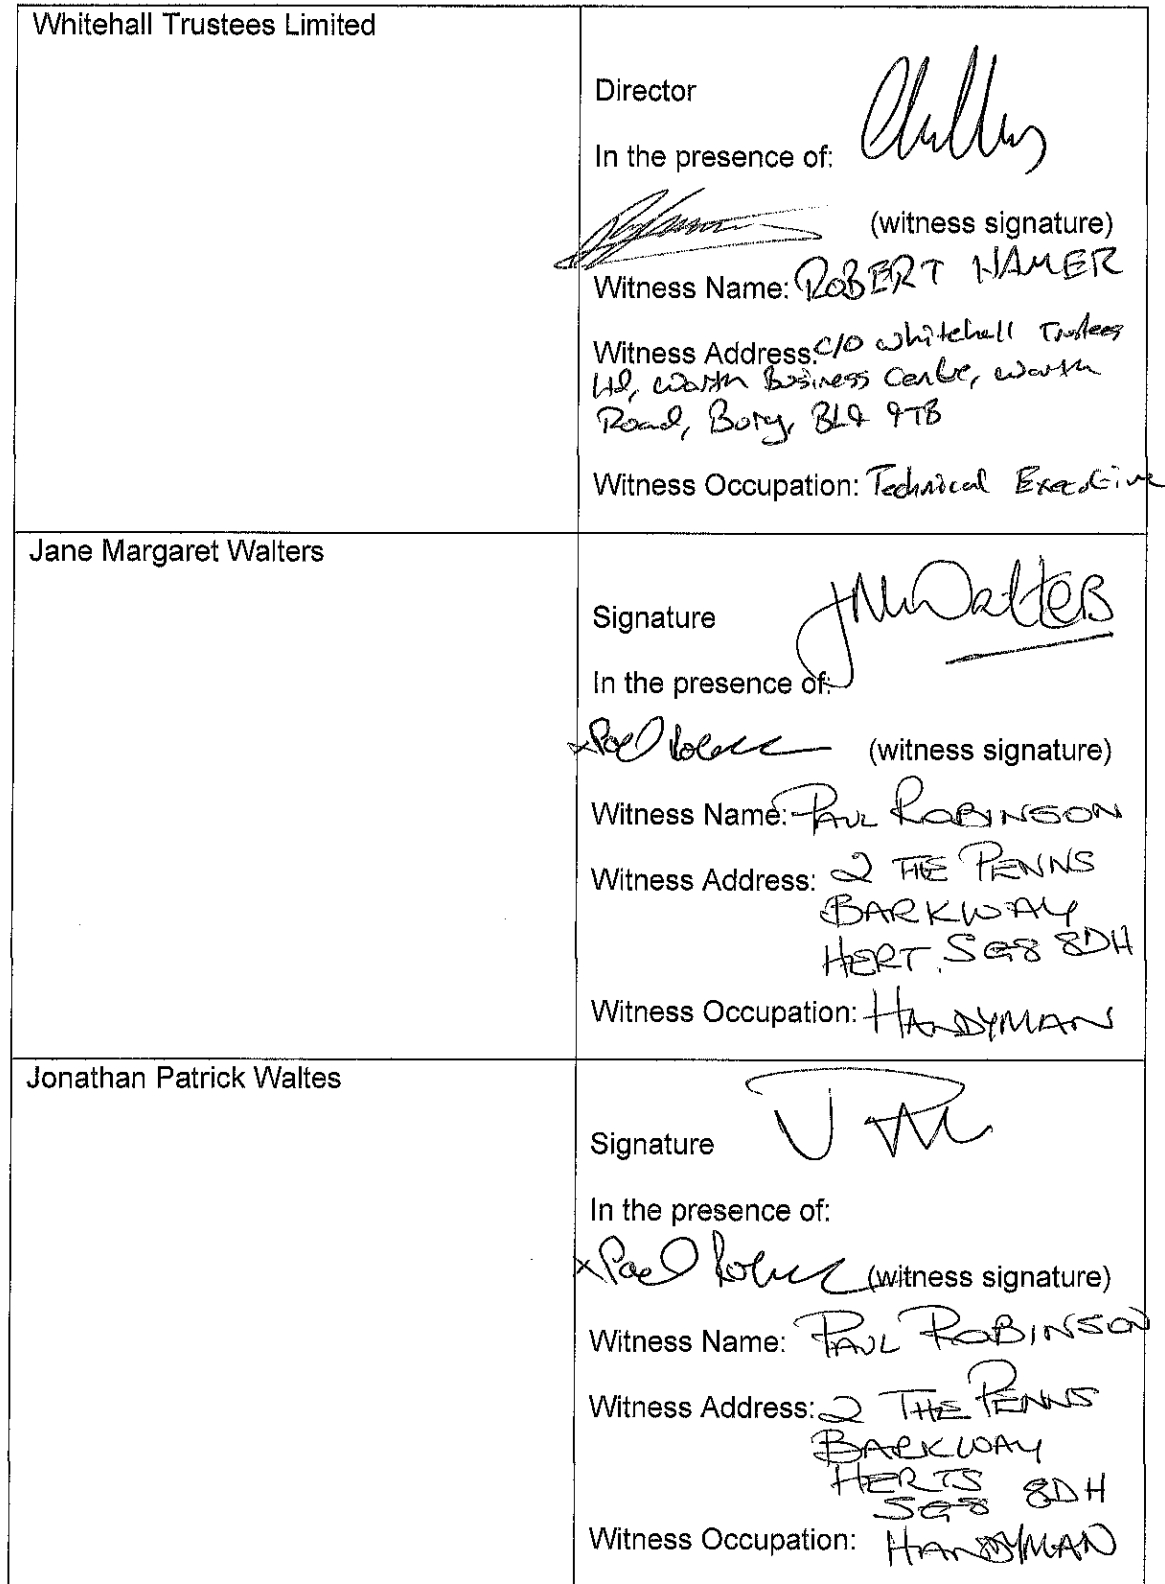 Whitehall Trustees Limited
Director
In the presence of:
(witness signature)
Witness Name: ROBERT HAMER
Witness Address: C/O Whitehall Trustees
Ltd, Warth Business Centre, Warth
Road, Bury, BL9 9TB
Witness Occupation: Technical Executive
Jane Margaret Walters
Signature JMWalters
In the presence of:
x Paul (witness signature)
Witness Name: PAUL ROBINSON
Witness Address: 2 THE PENNS
BARKWAY
HERT. SG8 8DH
Witness Occupation: HANDYMAN
Jonathan Patrick Waltes
Signature
In the presence of:
x Paul (witness signature)
Witness Name: PAUL ROBINSON
Witness Address: 2 THE PENNS
BARKWAY
HERTS
SG8 8DH
Witness Occupation: HANDYMAN